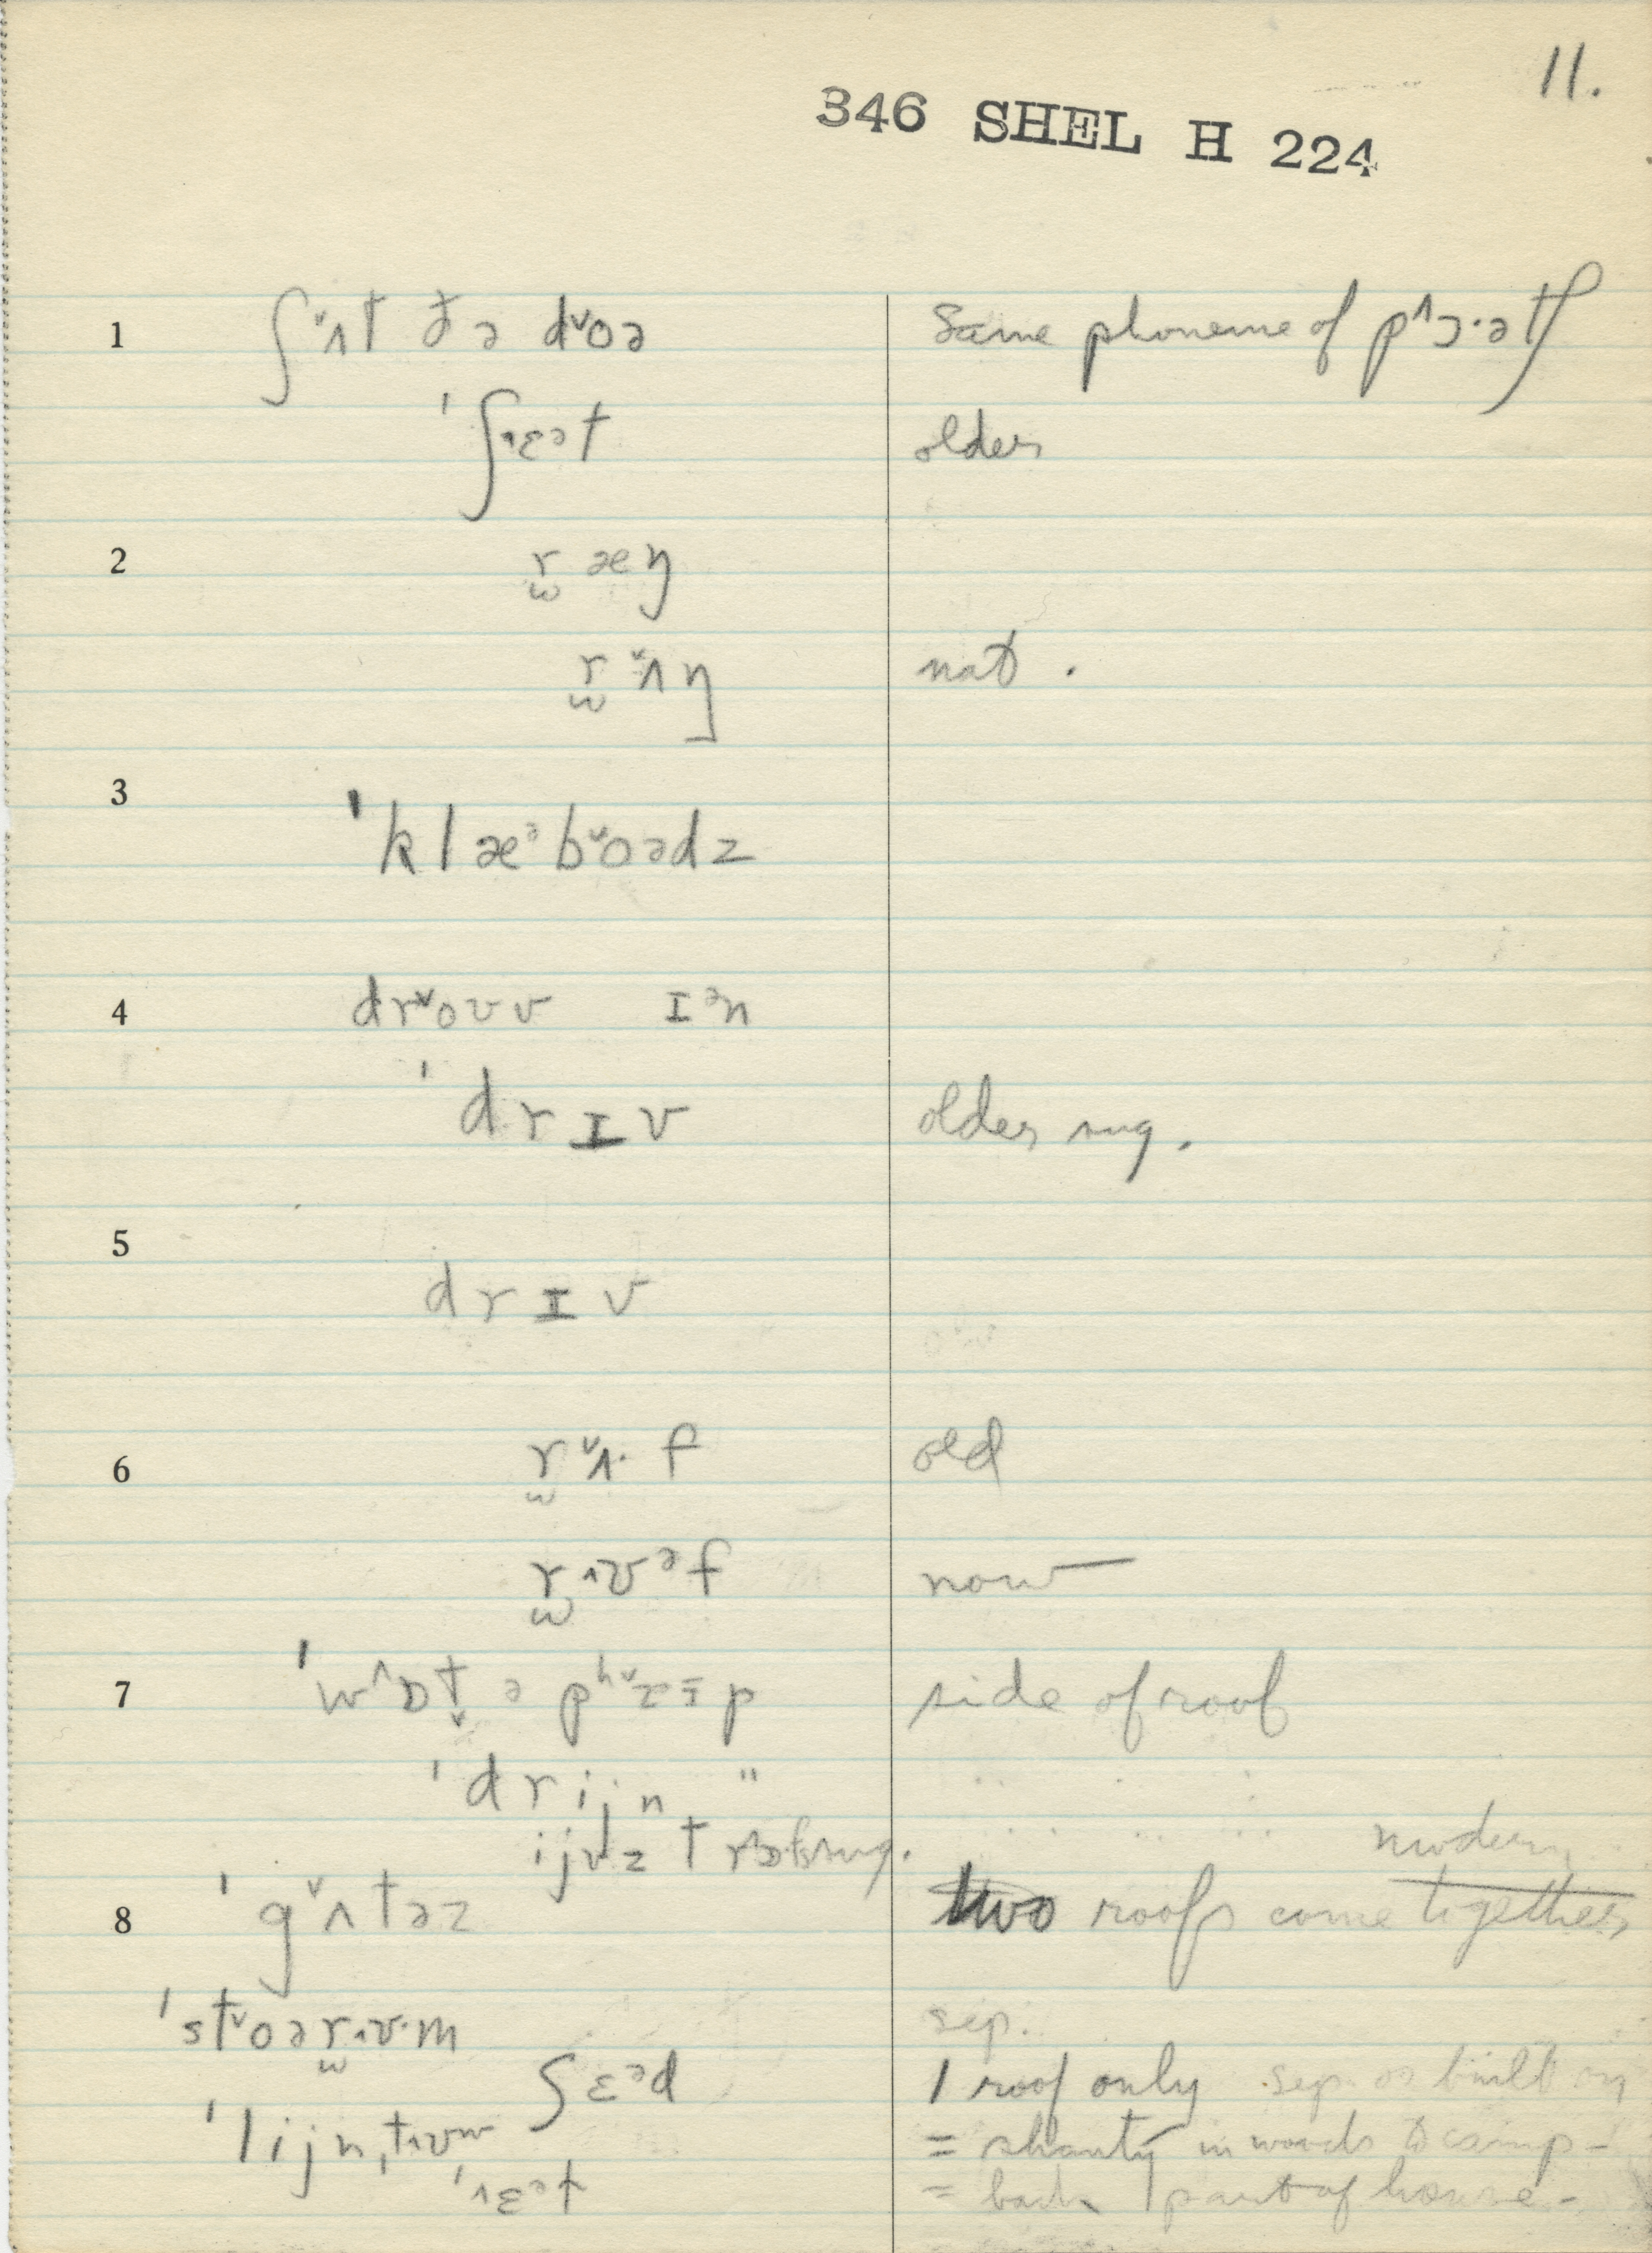 11.
346 SHEL H 224
1 ʃ˅ʌt ðə d˅oə Same phoneme of p^ɔ·ətʃ
ˈʃ˄ɛət older
2 r̫ æ ŋ
r̫ ˅ʌ ŋ nat.
3 ˈklæᵊb˅oədz
4 dr˅oʊv ɪᵊn
ˈdrɪv older sug.
5 drɪv
6 r̫ ˅ʌ· f old
r̫ ˄ʊᵊf now
7 ˈw^ɒt̬ ə pʰ p side of roof
ˈdrijn "
ijvz t sug.
modern
8 ˈg˅ʌtəz two roofs come together
ˈst˅oər̫˄ʊ·m sep.
ʃɛᵊd 1 roof only sep. or built in
ˈlijnˌt˄ʊw = shanty in woods to camp -
ˈ˄ɛᵊt = back part of house -